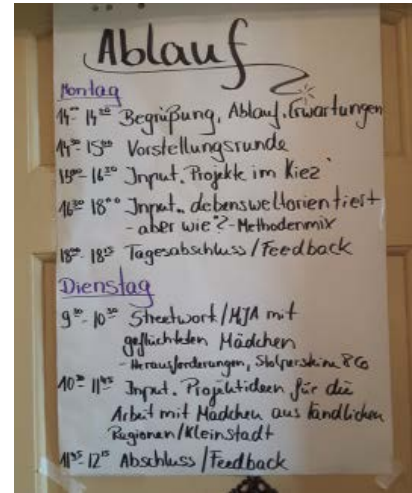 Ablauf
Montag
14⁰⁰ 14³⁰ Begrüßung, Ablauf, Erwartungen
14³⁰ - 15⁰⁰ Vorstellungsrunde
15⁰⁰ - 16³⁰ Input. Projekte im Kiez
16³⁰ 18⁰⁰ Input. „Lebensweltorientiert
- aber wie"? - Methodenmix
18⁰⁰ - 18¹⁵ Tagesabschluss / Feedback
Dienstag
9³⁰ - 10³⁰ Streetwork / MJA mit
geflüchteten Mädchen
- Herausforderungen, Stolpersteine & Co
10³⁰ - 11⁴⁵ Input. Projektideen für die
Arbeit mit Mädchen aus ländlichen
Regionen / Kleinstadt
12¹⁵ Abschluss / Feedback